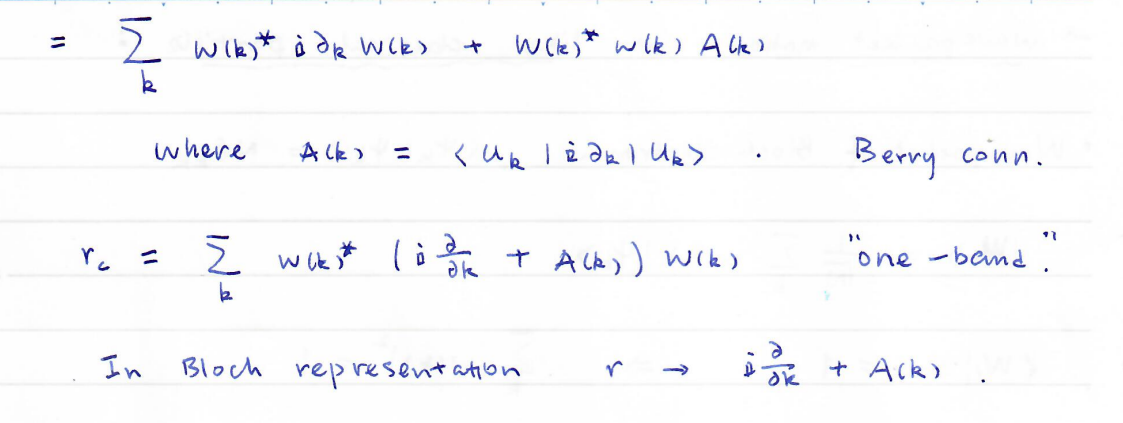 = ∑_k W(k)* i ∂_k W(k) + W(k)* W(k) A(k)
where A(k) = < U_k | i ∂_k | U_k > . Berry conn.
r_c = ∑_k W(k)* ( i ∂/∂k + A(k) ) W(k) "one-band".
In Bloch representation r → i ∂/∂k + A(k) .